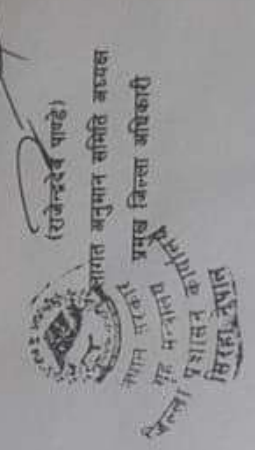 (राजेन्द्रदेव पाण्डे)
लागत अनुमान समिति अध्यक्ष
प्रमुख जिल्ला अधिकारी
नेपाल सरकार
गृह मन्त्रालय
जिल्ला प्रशासन कार्यालय
सिरहा, नेपाल